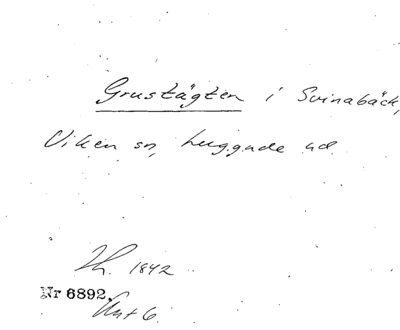 Grustägten i Svinabäck,
Viken sn, huggade ud
Th. 1842
Nr 6892.
Ant 6.